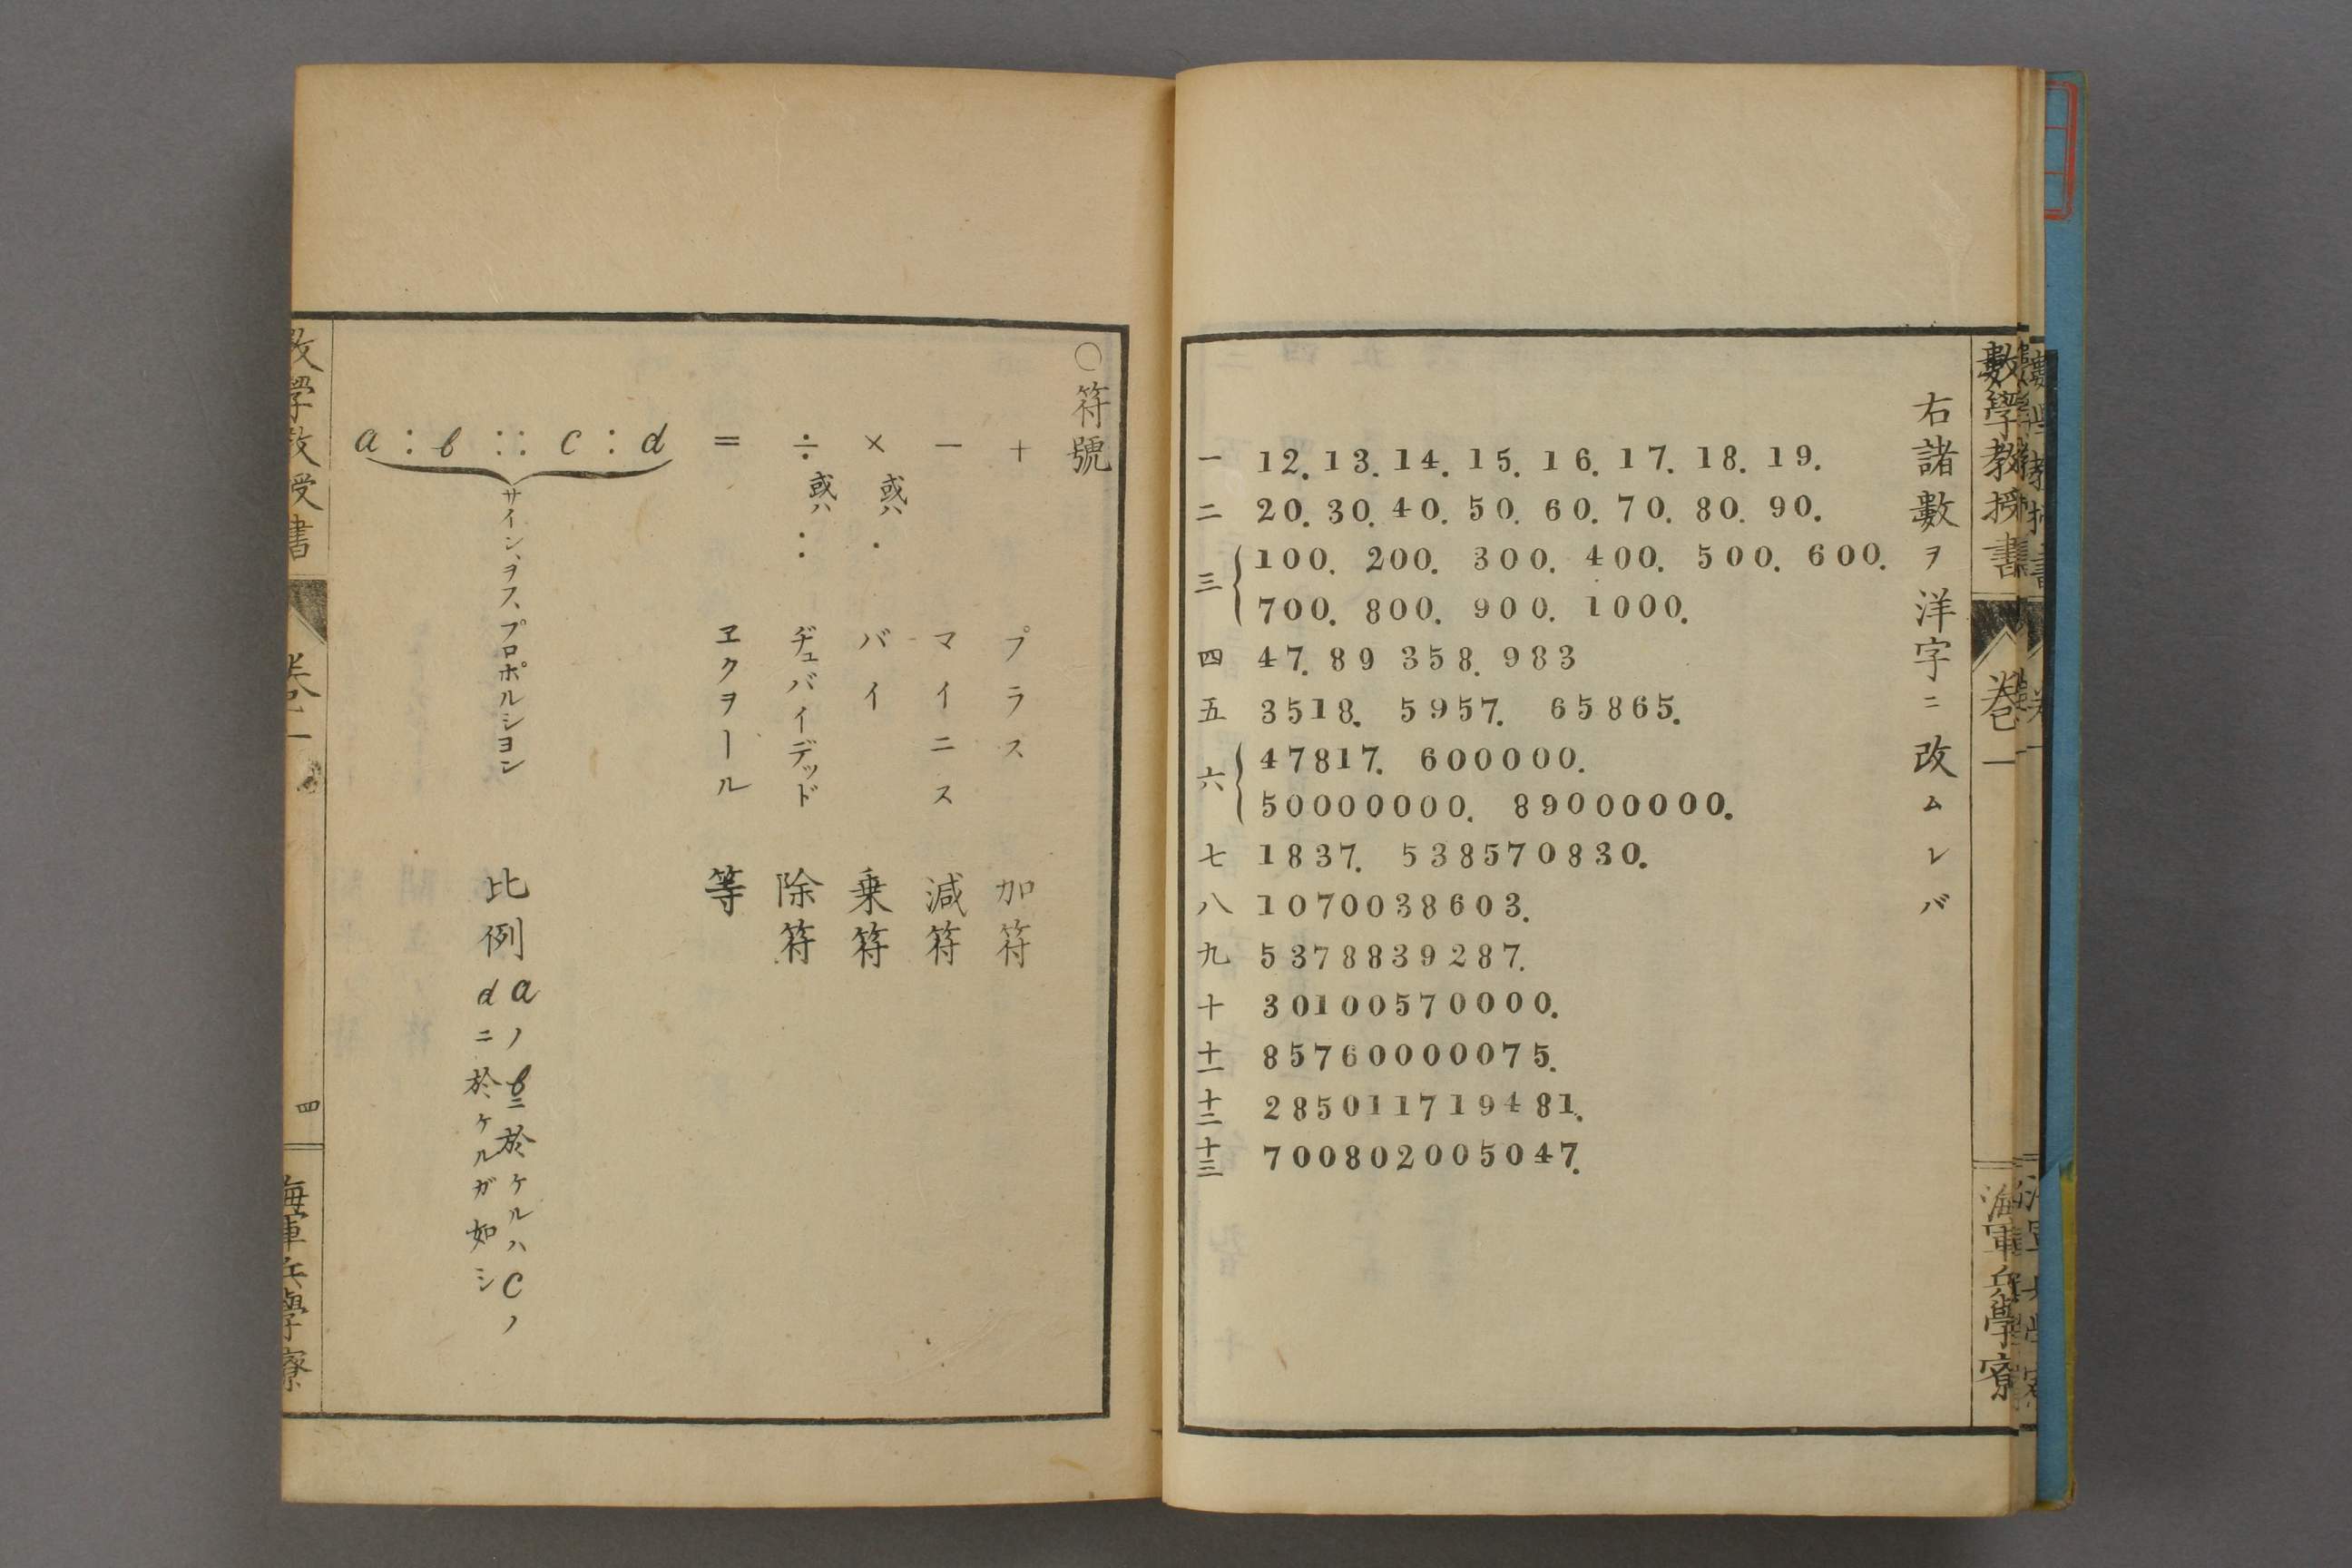 數學教授書
卷一
海軍兵學寮
右諸數ヲ洋字ニ改ムレバ
一 12. 13. 14. 15. 16. 17. 18. 19.
二 20. 30. 40. 50. 60. 70. 80. 90.
三 100. 200. 300. 400. 500. 600.
700. 800. 900. 1000.
四 47. 89 358. 983
五 3518. 5957. 65865.
六 47817. 600000.
50000000. 89000000.
七 1837. 538570830.
八 1070038603.
九 5378839287.
十 30100570000.
十一 85760000075.
十二 285011719481.
十三 700802005047.
○符號
+ プラス 加符
− マイニス 減符
× 或ハ . バイ 乗符
÷ 或ハ : ヂュバイデッド 除符
= ヱクヲール 等
a : b :: c : d サイン、ヲフ、プロポルション 比例 aノbニ於ケルハCノ
dニ於ケルガ如シ
數學教授書
卷一
四
海軍兵學寮